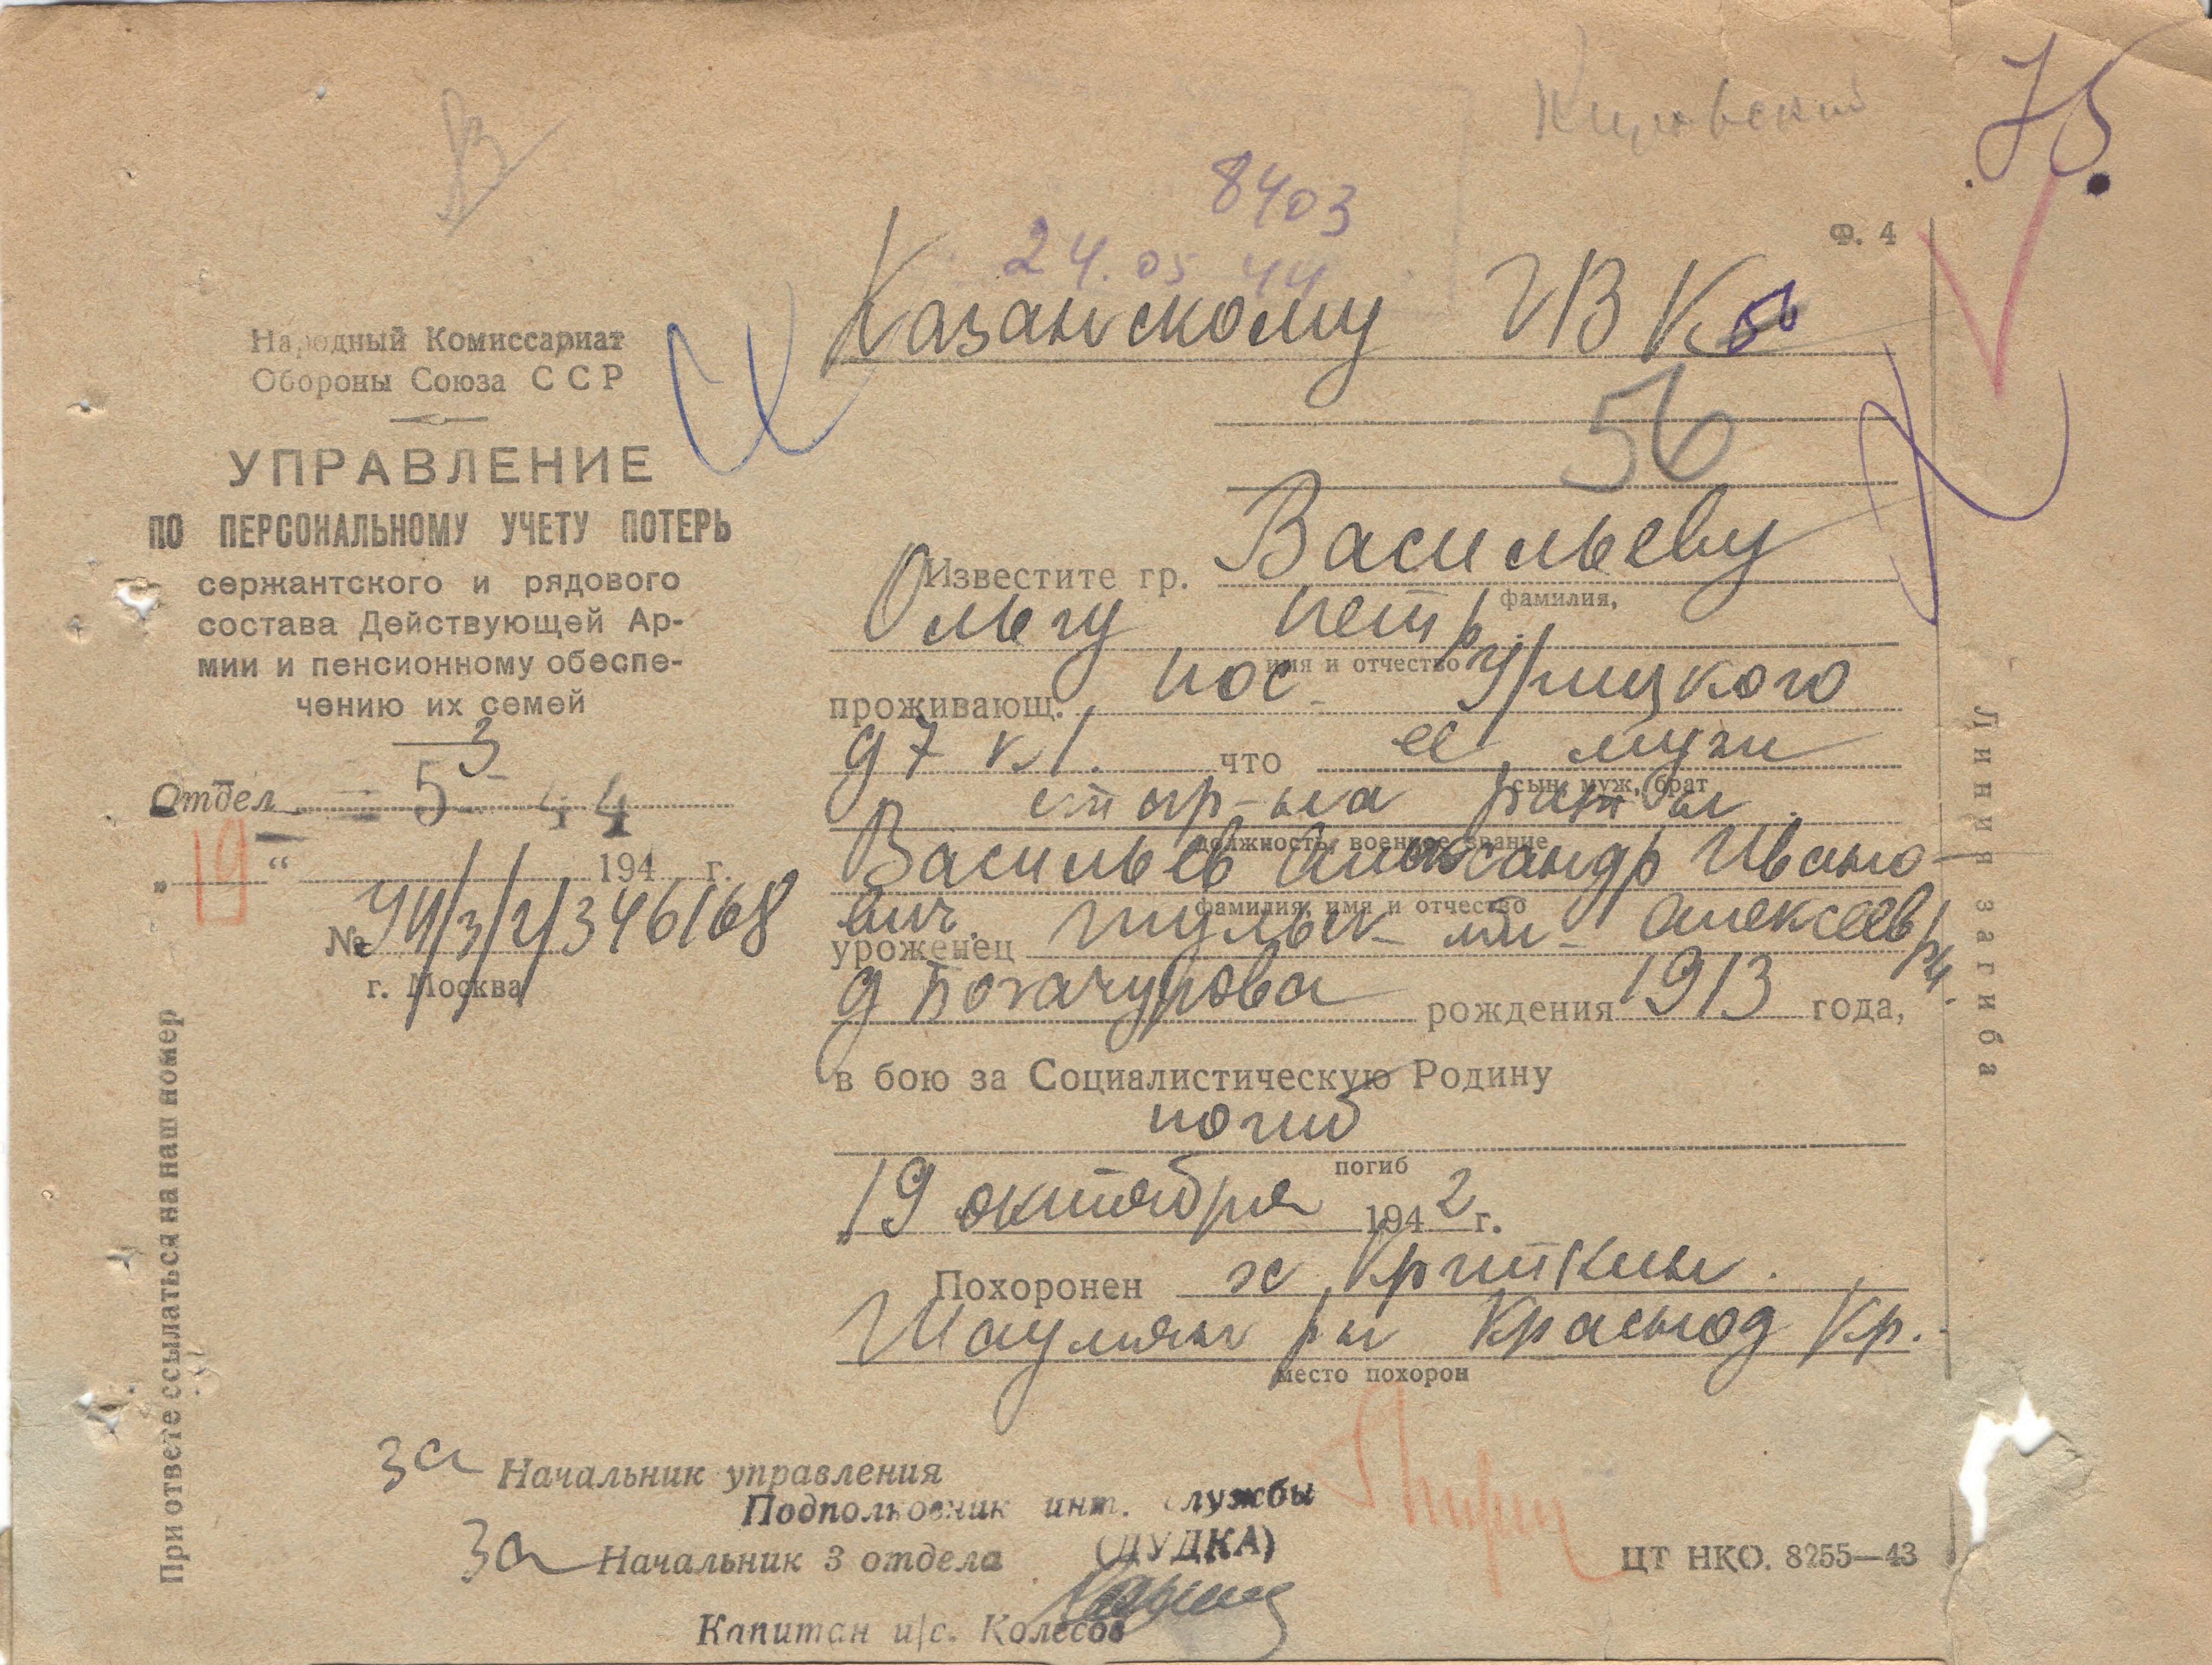 75.
8403
24.05 44
Ф. 4
Народный Комиссариат
Обороны Союза ССР
УПРАВЛЕНИЕ
ПО ПЕРСОНАЛЬНОМУ УЧЕТУ ПОТЕРЬ
сержантского и рядового
состава Действующей Ар-
мии и пенсионному обеспе-
чению их семей
3
Отдел 5 - 44
" 19 " 194 г.
№ 346168
г. Москва
При ответе ссылаться на наш номер
Казанскому ГВК
56
Известите гр. Васильеву
фамилия,
Ольгу Петр.
имя и отчество
проживающ. пос. Урицкого
д 7 к 1. что её муж
сын, муж, брат
стар-на роты
должность, военное звание
Васильев Александр Ивано-
фамилия, имя и отчество
вич.
уроженец Тульск Алексеев
д Богачурова рождения 1913 года,
в бою за Социалистическую Родину
погиб
погиб
19 октября 1942 г.
Похоронен х.
Шаумян р н Краснод Кр.
место похорон
Линия загиба
За Начальник управления
Подполковник инт. службы
(ДУДКА)
За Начальник 3 отдела
Капитан и/с. Колесов
ЦТ НКО. 8255—43